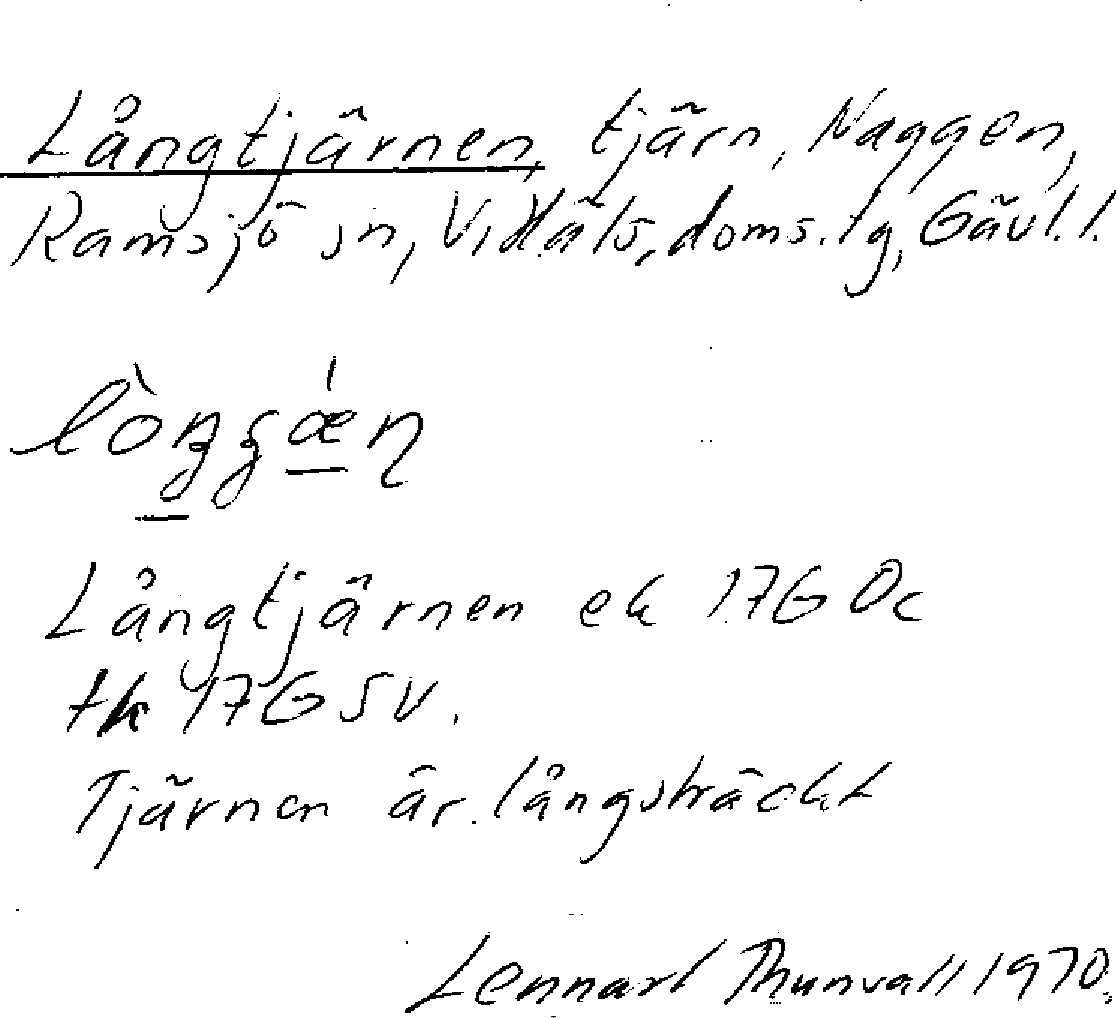 Långtjärnen, tjärn, Naggen,
Ramsjö sn, Vidläls, doms.lg, Gävl.l.
Långtjärnen ek 17G 0c
tk 17G SV.
Tjärnen är långsträckt
Lennart Thunvall 1970.